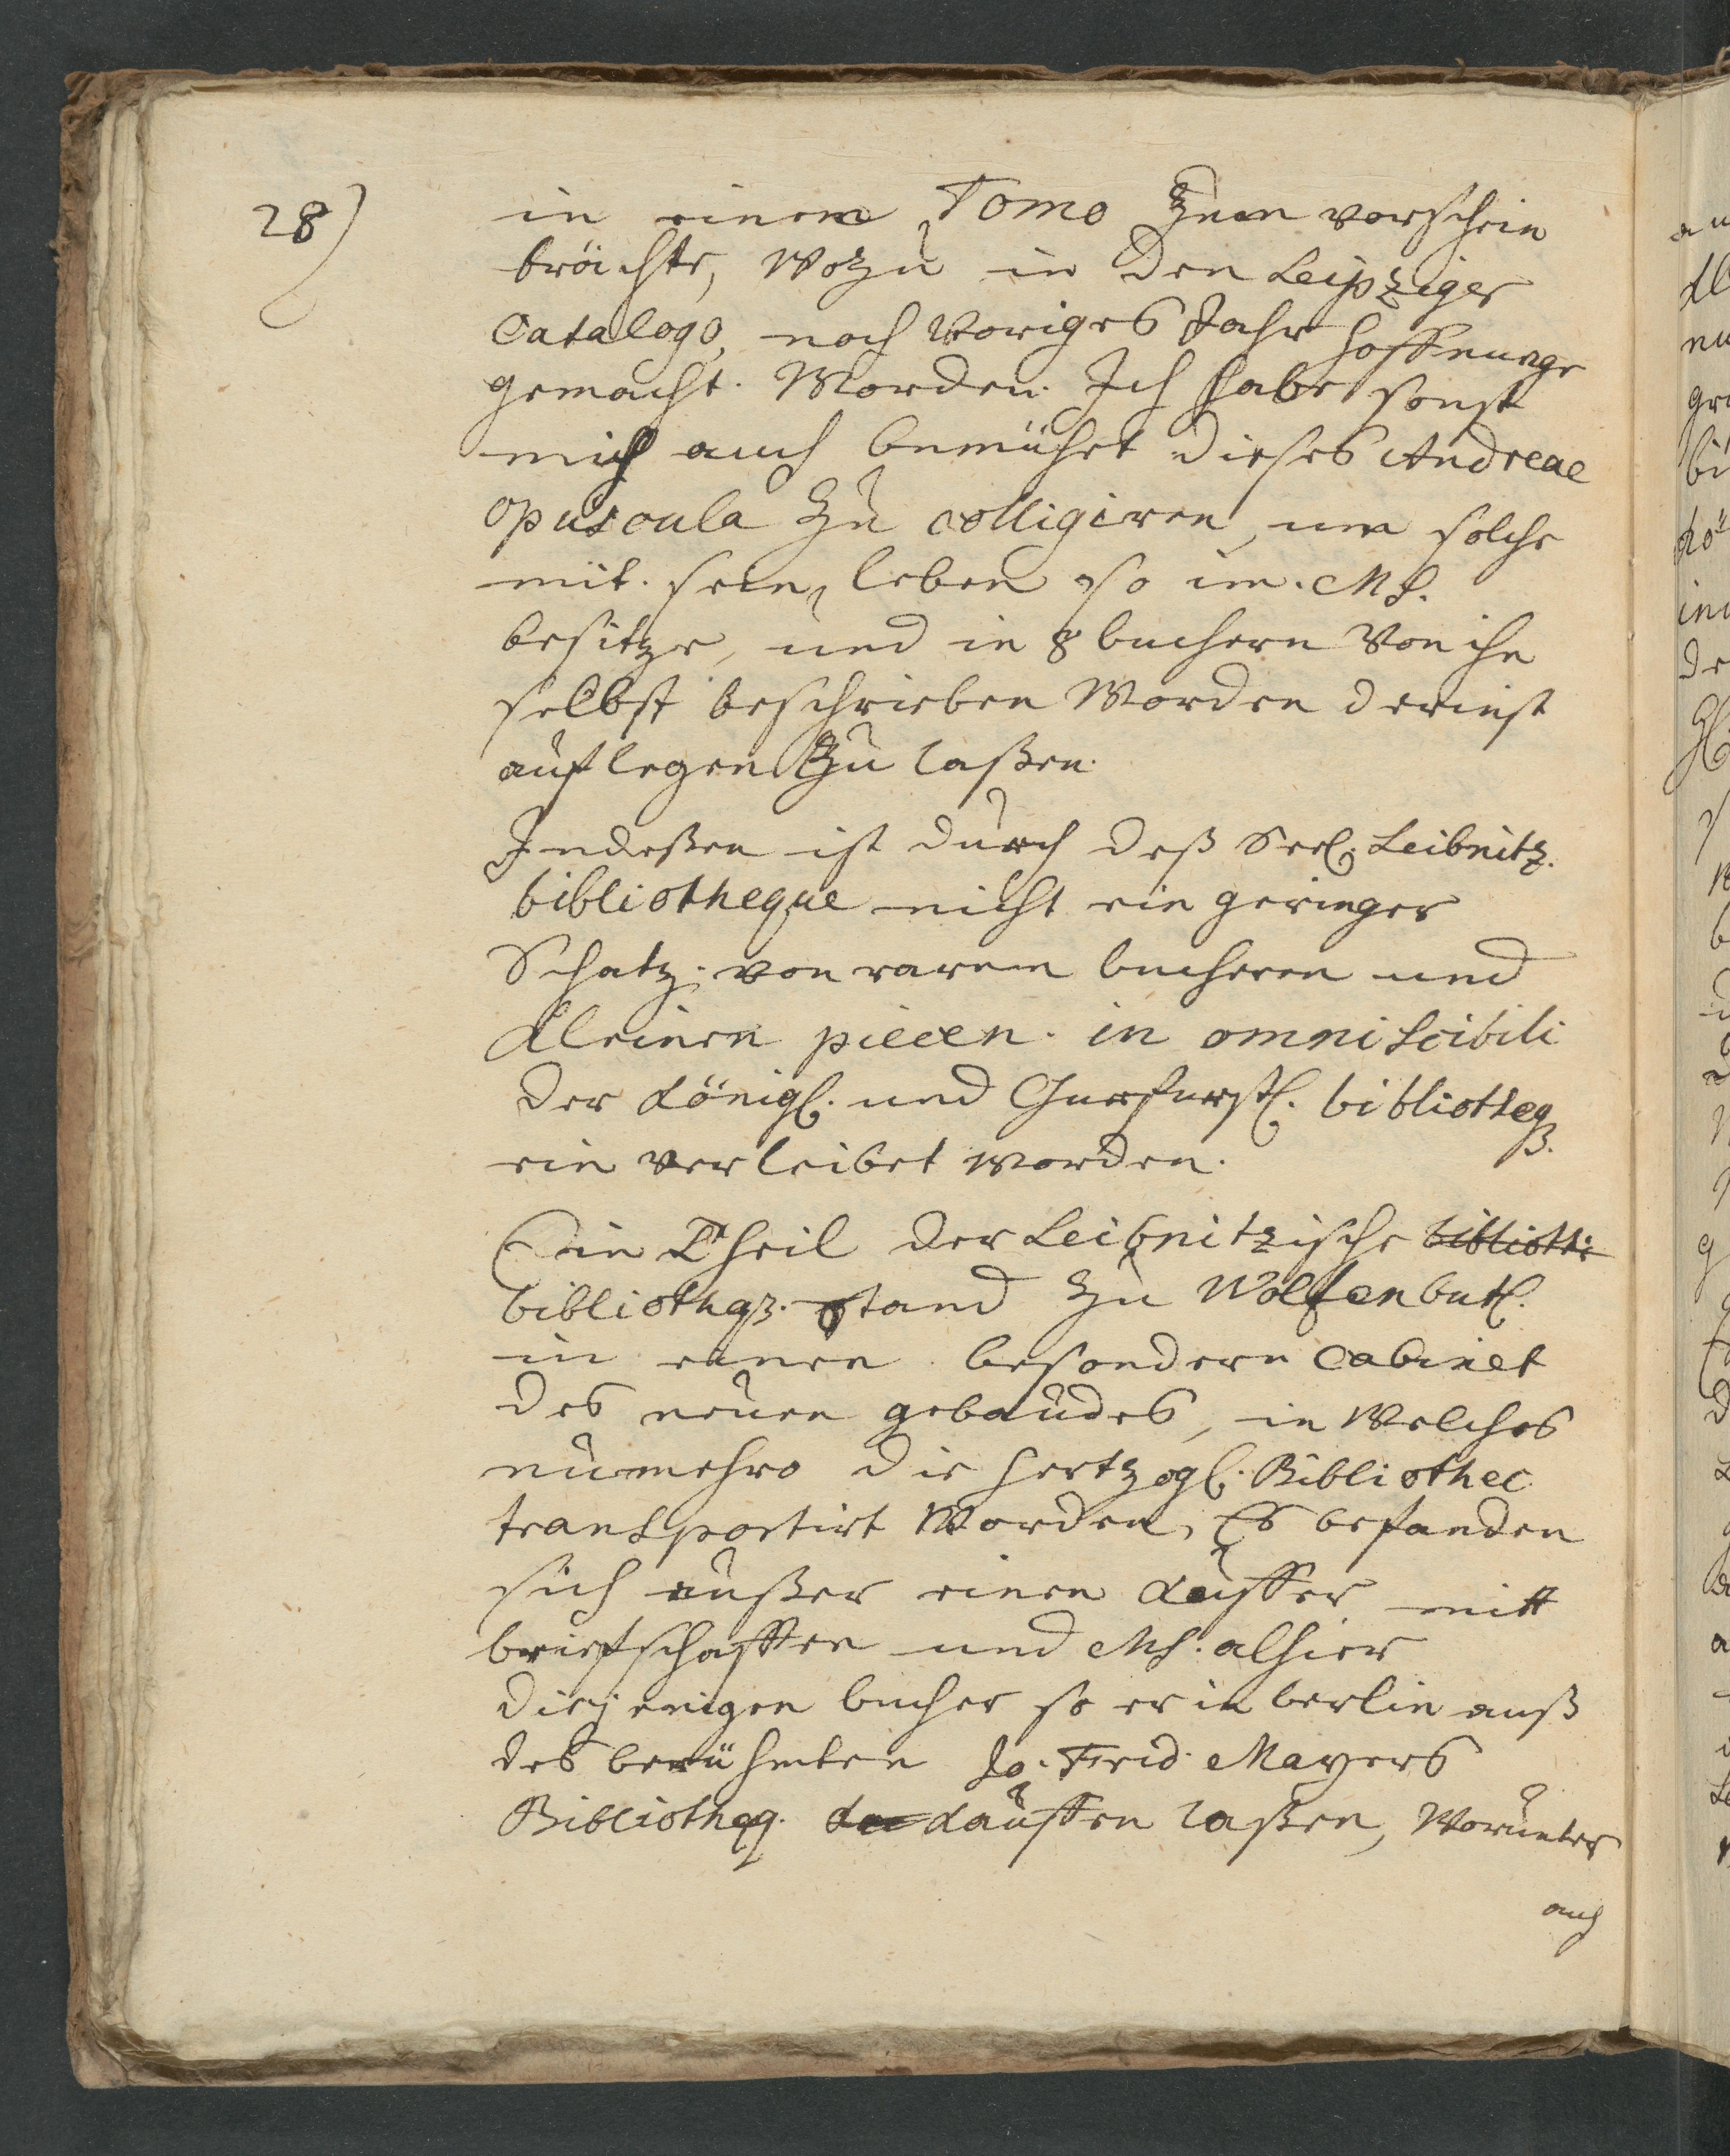 28)
in einem Tomo Zum vorschein
brächte, wozu in den Leipziger
Catalogo, noch voriges Jahr hoffnunge
gemacht. Worden. Ich habe sonst
mich auch bemühet dieses Andreae
opuscula Zu colligiren, um solche
mit. sein leben so im. Ms.
besitze, und in 8 buchern von ihn
selbst beschrieben Worden dereinst
auflegen Zu laßen.
Indeßen ist durch deß Seel. Leibnitz.
bibliotheque nicht ein geringer
Schatz. von raren bucheren und
kleinen piecen. in omni scibili
der Königl. und Churfurstl. bibliotheq3.
ein verleibet worden.
Ein Theil der Leibnitzische bibliothe
bibliothq3. stand Zu Wolfenbutl.
in einen besondern Cabinet
des neuen gebaudes, in Welches
nunmehro die Hertzogl. Bibliothec
transportirt Worden, Es befanden
sich außer einen Kuffer mitt
briefschafften und Ms. alhier
diejenigen bucher so er in berlin auß
des berühmten Jo. Frid. Mayers
Bibliotheq. kauffen laßen, Worunter
auch